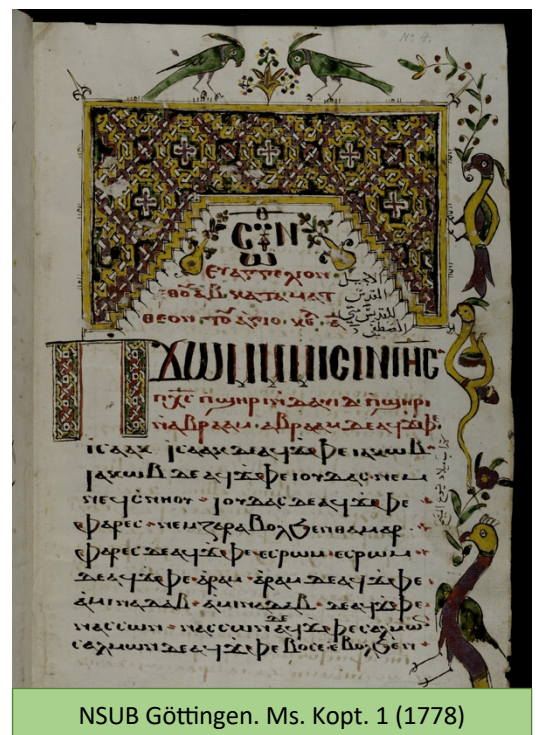 № 4.
ⲥⲩⲛ ⲑⲱ
ⲉⲩⲁⲅⲅⲉⲗⲓⲟⲛ الانجيل
ⲕⲁⲧⲁ ⲙⲁⲧ المقدس
ⲑⲉⲟⲛ · ⲧⲟⲩ للقديس متي
ⲡϫⲱⲙⲙⲙⲓⲥⲓⲛⲓⲏⲥ
ⲡⲭⲥ ⲡϣⲏⲣⲓ ⲛⲇⲁⲇ ⲡϣⲏⲣⲓ
ⲛⲁⲃⲣⲁⲁⲙ · ⲁⲃⲣⲁⲁⲙ ⲇⲉ ⲁϥϫⲫⲉ
ⲓⲥⲁⲁⲕ ⲓⲥⲁⲁⲕ ⲇⲉ ⲁϥϫⲫⲉ ⲓⲁⲕⲱⲃ ·
ⲓⲁⲕⲱⲃ ⲇⲉ ⲁϥϫⲫⲉ ⲓⲟⲩⲇⲁⲥ ⲛⲉⲙ
ⲛⲉϥⲥⲛⲏⲟⲩ · ⲓⲟⲩⲇⲁⲥ ⲇⲉ ⲁϥϫⲫⲉ
ⲫⲁⲣⲉⲥ · ⲛⲉⲙ ⲍⲁⲣⲁ ⲃⲟⲗϧⲉⲛ ⲑⲁⲙⲁⲣ ·
ⲫⲁⲣⲉⲥ ⲇⲉ ⲁϥϫⲫⲉ ⲉⲥⲣⲱⲙ · ⲉⲥⲣⲱⲙ
ⲇⲉ ⲁϥϫⲫⲉ ⲁⲣⲁⲙ · ⲁⲣⲁⲙ ⲇⲉ ⲁϥϫⲫⲉ
ⲁⲙⲓⲛⲁⲇⲁⲃ · ⲁⲙⲓⲛⲁⲇⲁⲃ · ⲇⲉ ⲁϥϫⲫⲉ
ⲛⲁⲥⲥⲱⲛ · ⲛⲁⲥⲥⲱⲛ ⲇⲉ ⲁϥϫⲫⲉ ⲥⲁⲗⲙⲱⲛ
ⲥⲁⲗⲙⲱⲛ ⲇⲉ ⲁϥϫⲫⲉ ⲃⲟⲉⲥ ⲉⲃⲟⲗϧⲉⲛ
NSUB Göttingen. Ms. Kopt. 1 (1778)